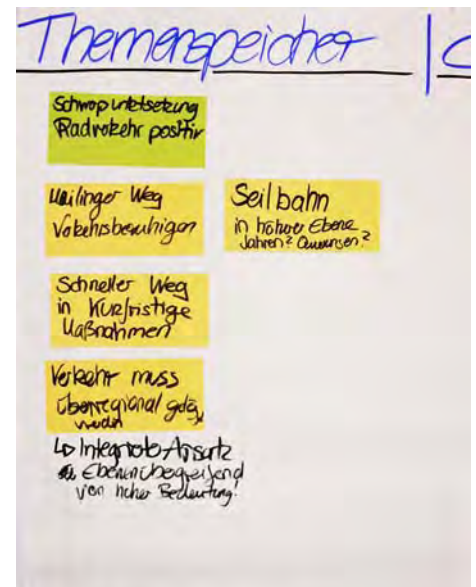 Themenspeicher
Schwerpunktsetzung
Radverkehr positiv
Mailinger Weg
Verkehrsberuhigen
Seilbahn
in höherer Ebene
Jahren?
Schneller Weg
in Kurzfristige
Maßnahmen
Verkehr muss
überregional
werden
↳ Integrierter Ansatz
Ebenenübergreifend
von hoher Bedeutung!